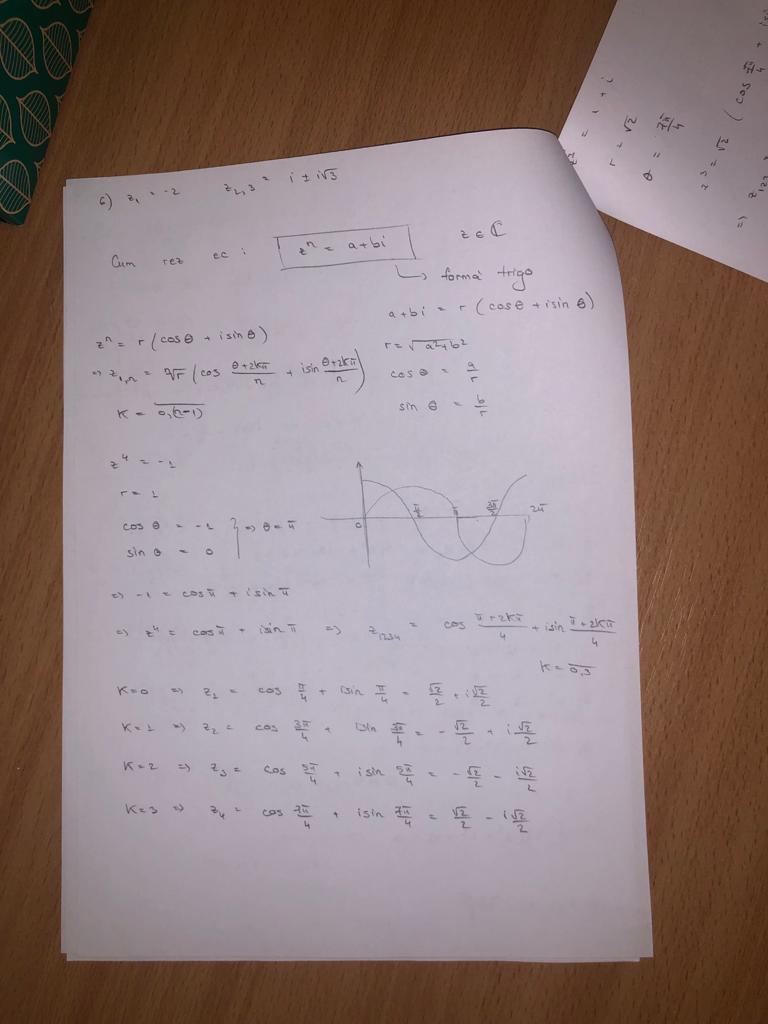 6) z₁ = -2    z₂,₃ = i ± i√3
Cum rez ec : zⁿ = a+bi    z ∈ ℂ
↳ formă trigo
a+bi = r (cosθ + isin θ)
zⁿ = r (cosθ + isinθ)
r = √(a²+b²)
⇒ z₁,ₙ = ⁿ√r (cos (θ+2kπ)/n + isin (θ+2kπ)/n)
cosθ = a/r
K = 0,(n-1)
sin θ = b/r
z⁴ = -1
r = 1
cos θ = -1
sin θ = 0
} ⇒ θ = π
0 π/2 π 3π/2 2π
⇒ -1 = cosπ + isin π
⇒ z⁴ = cosπ + isin π ⇒ z₁₂₃₄ = cos (π+2Kπ)/4 + isin (π+2Kπ)/4
K = 0,3
K=0 ⇒ z₁ = cos π/4 + isin π/4 = √2/2 + i√2/2
K=1 ⇒ z₂ = cos 3π/4 + isin 3π/4 = -√2/2 + i√2/2
K=2 ⇒ z₃ = cos 5π/4 + isin 5π/4 = -√2/2 - i√2/2
K=3 ⇒ z₄ = cos 7π/4 + isin 7π/4 = √2/2 - i√2/2
= 1 + i
r = √2
θ = 7π/4
z³ = √2 (cos 7π/4 +
⇒ z₁₂₃